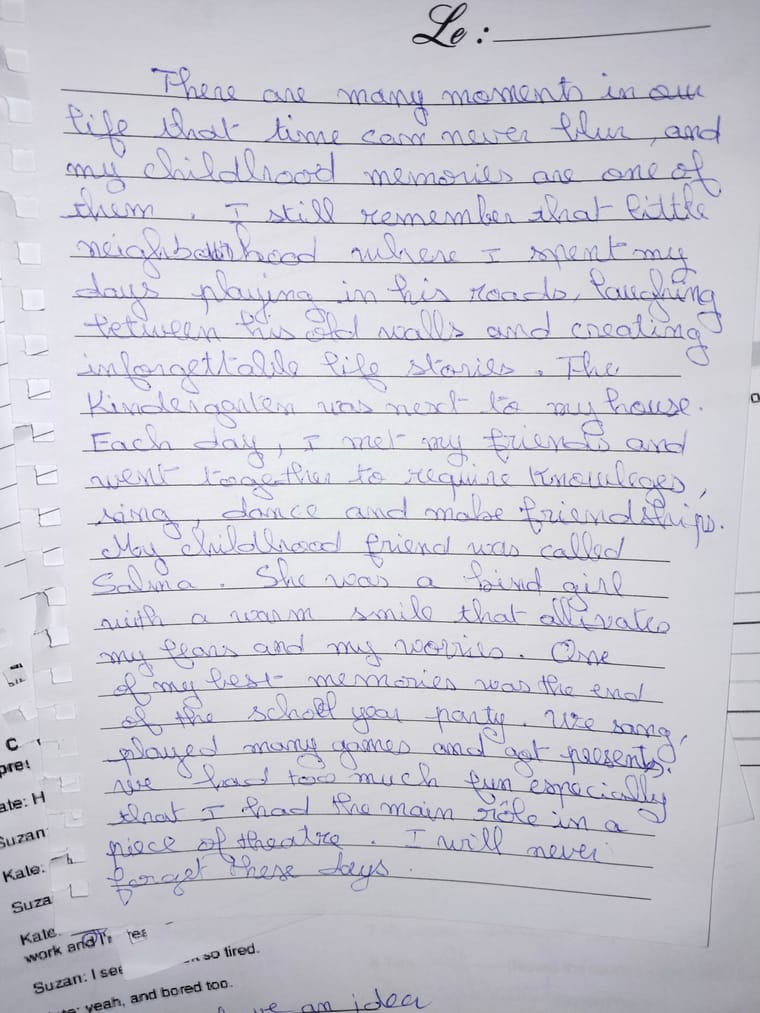 Le :
There are many moments in our
life that time can never blur, and
my childhood memories are one of
them. I still remember that little
neighbourhood where I spent my
days playing in his roads, laughing
between his old walls and creating
inforgettable life stories. The
Kindergarten was next to my house.
Each day, I met my friends and
went together to require knowleges,
sing, dance and make friendships.
My childhood friend was called
Salma. She was a kind girl
with a warm smile that allivates
my fears and my worries. One
of my best memories was the end
of the school year party. We sang,
played many games and got presents.
we had too much fun especially
that I had the main rôle in a
piece of theatre. I will never
forget these days.
C
pret
ate: H
Suzan
Kale:
Suza
Kale.
work and I'
Suzan: I see so tired.
yeah, and bored too.
an idea